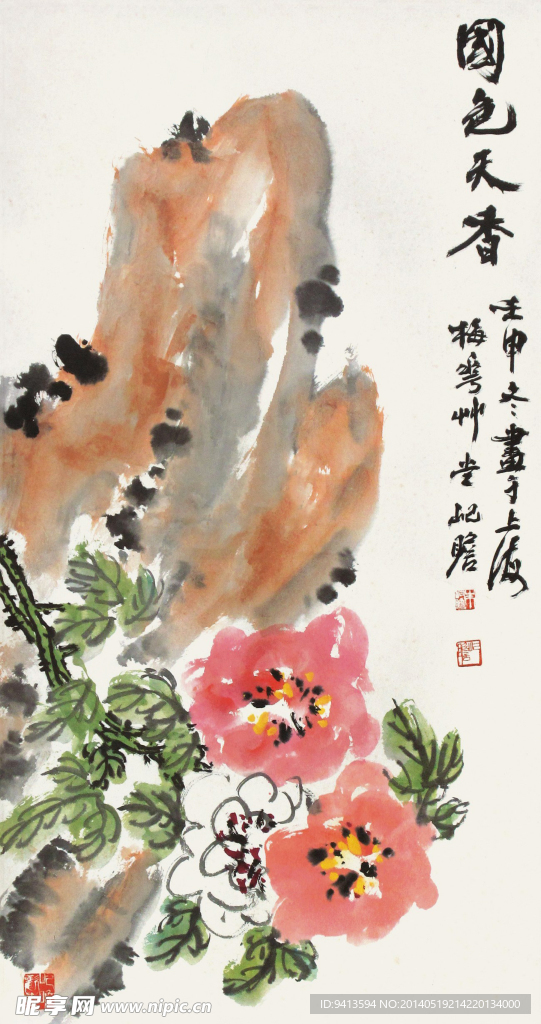 國色天香
壬申冬畫于上海
梅花艸堂屺瞻
昵享网 www.nipic.cn
ID:9413594 NO:20140519214220134000